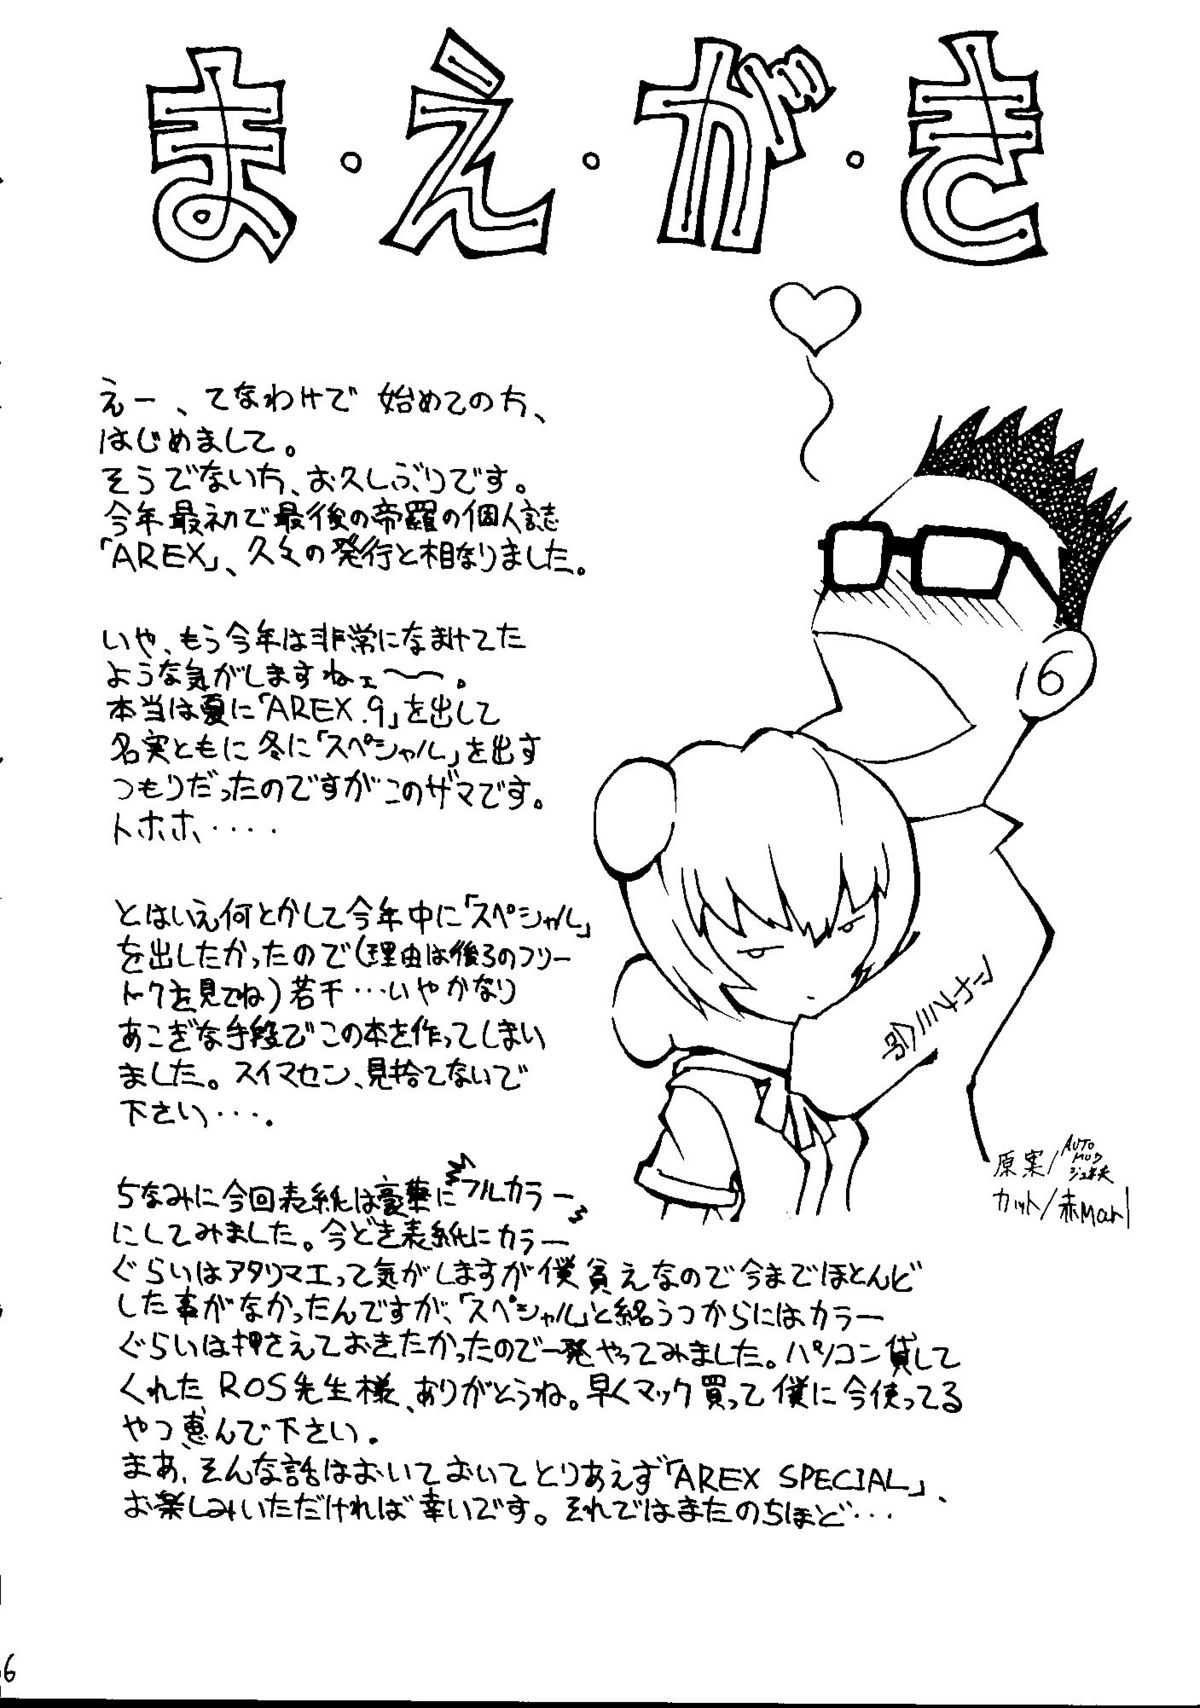 ま・え・が・き
えー、てなわけで 始めてのち、
はじめまして。
そうでないち、お久しぶりです。
今年最初で最後の帝羅の個人誌
「AREX」、久々の発行と相なりました。
いや、もう今年は非常になまけてた
ような気がしますねェ〜〜。
本当は夏に「AREX.9」を出して
名実ともに冬に「スペシャル」を出す
つもりだったのですがこのザマです。
トホホ・・・・
とはいえ何とかして今年中に「スペシャル」
を出したかったので(理由は後ろのフリー
トークを見てね)若干・・・いやかなり
あこぎな手段でこの本を作ってしまい
ました。スイマセン、見捨てないで
下さい・・・。
ちなみに今回表紙は豪華にフルカラー
にしてみました。今どき表紙にカラー
ぐらいはアタリマエって気がしますが僕貧乏なので今までほとんど
した事がなかったんですが、「スペシャル」と銘うつからにはカラー
ぐらいは押さえておきたかったので一発やってみました。パソコン貸して
くれたROS先生様、ありがとうね。早くマック買って僕に今使ってる
やつ恵んで下さい。
まあ、そんな話はおいておいてとりあえず「AREX SPECIAL」、
お楽しみいただければ幸いです。それではまたのちほど・・・
6
原案/AUTO
カット/赤Marl
6